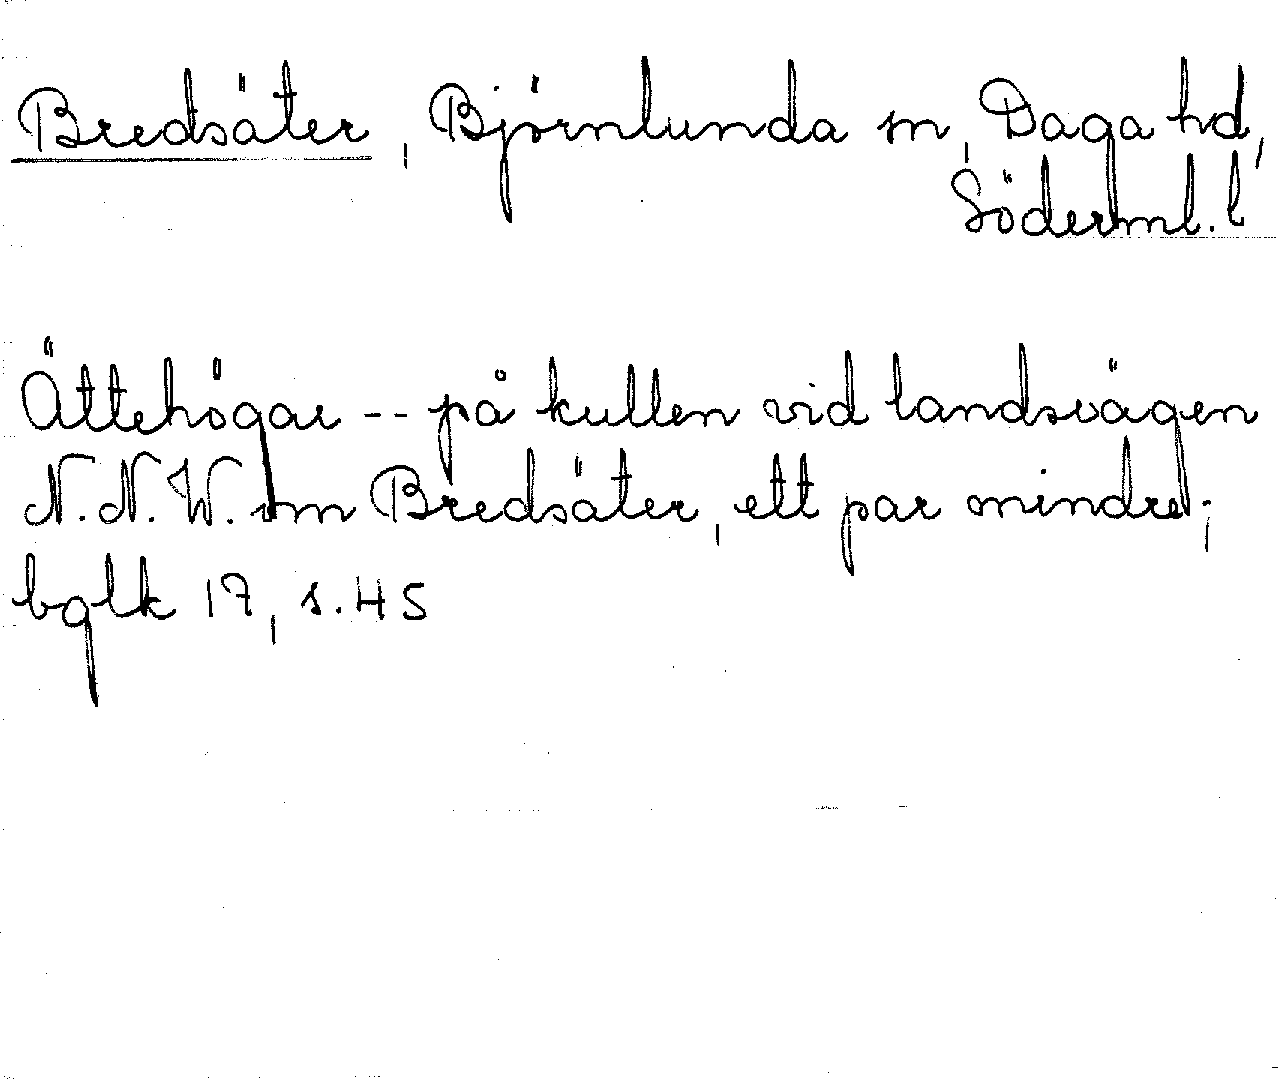 Bredsäter, Björnlunda sn, Daga hd,
Söderml. l
Ättehögar -- på kullen vid landsvägen
N.N.W. om Bredsäter, ett par mindre;
bglk 17, s. 45